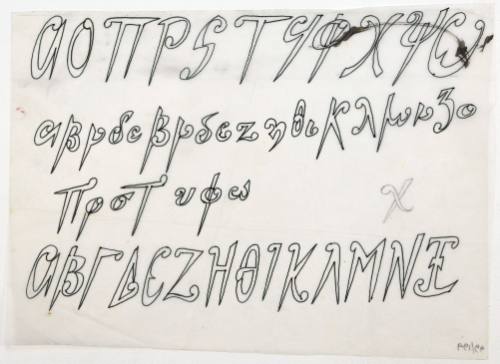 ΑΟΠΡSΤΥΦΧΨΩ
αβγδεβγδεζηθικλμνξο
πρστυφω χ
ΑΒΓΔΕΖΗΘΙΚΛΜΝΞ